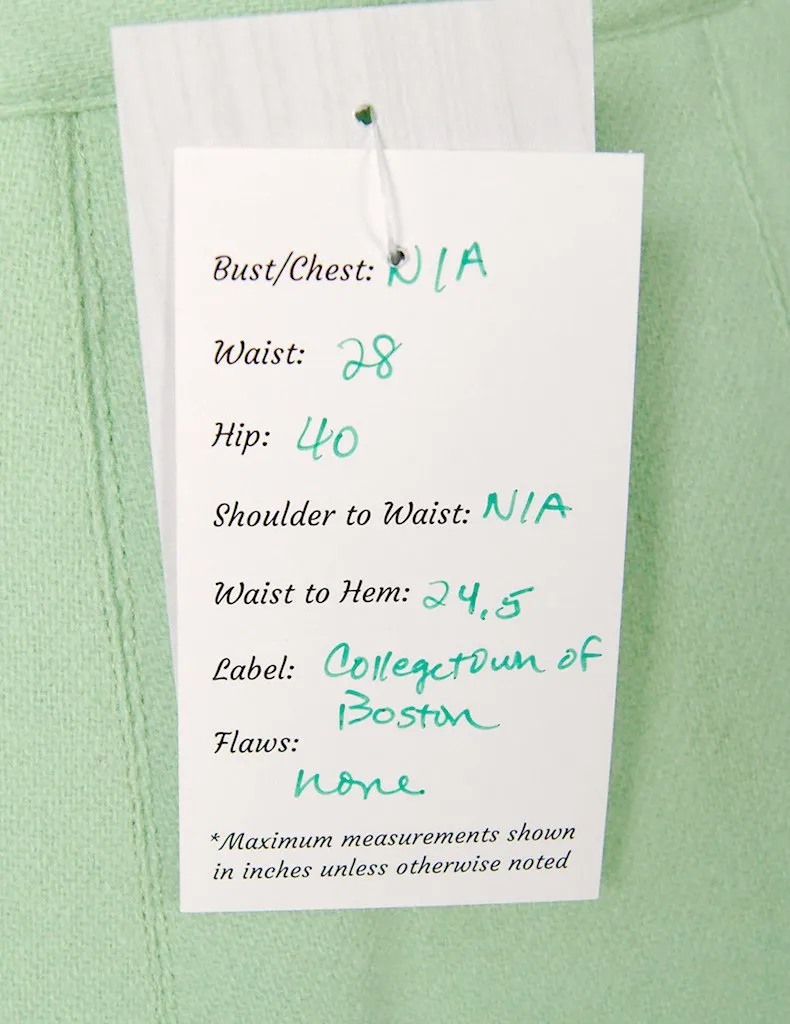 Bust/Chest: N/A
Waist: 28
Hip: 40
Shoulder to Waist: N/A
Waist to Hem: 24.5
Label: Collegetown of
Boston
Flaws:
none
*Maximum measurements shown
in inches unless otherwise noted